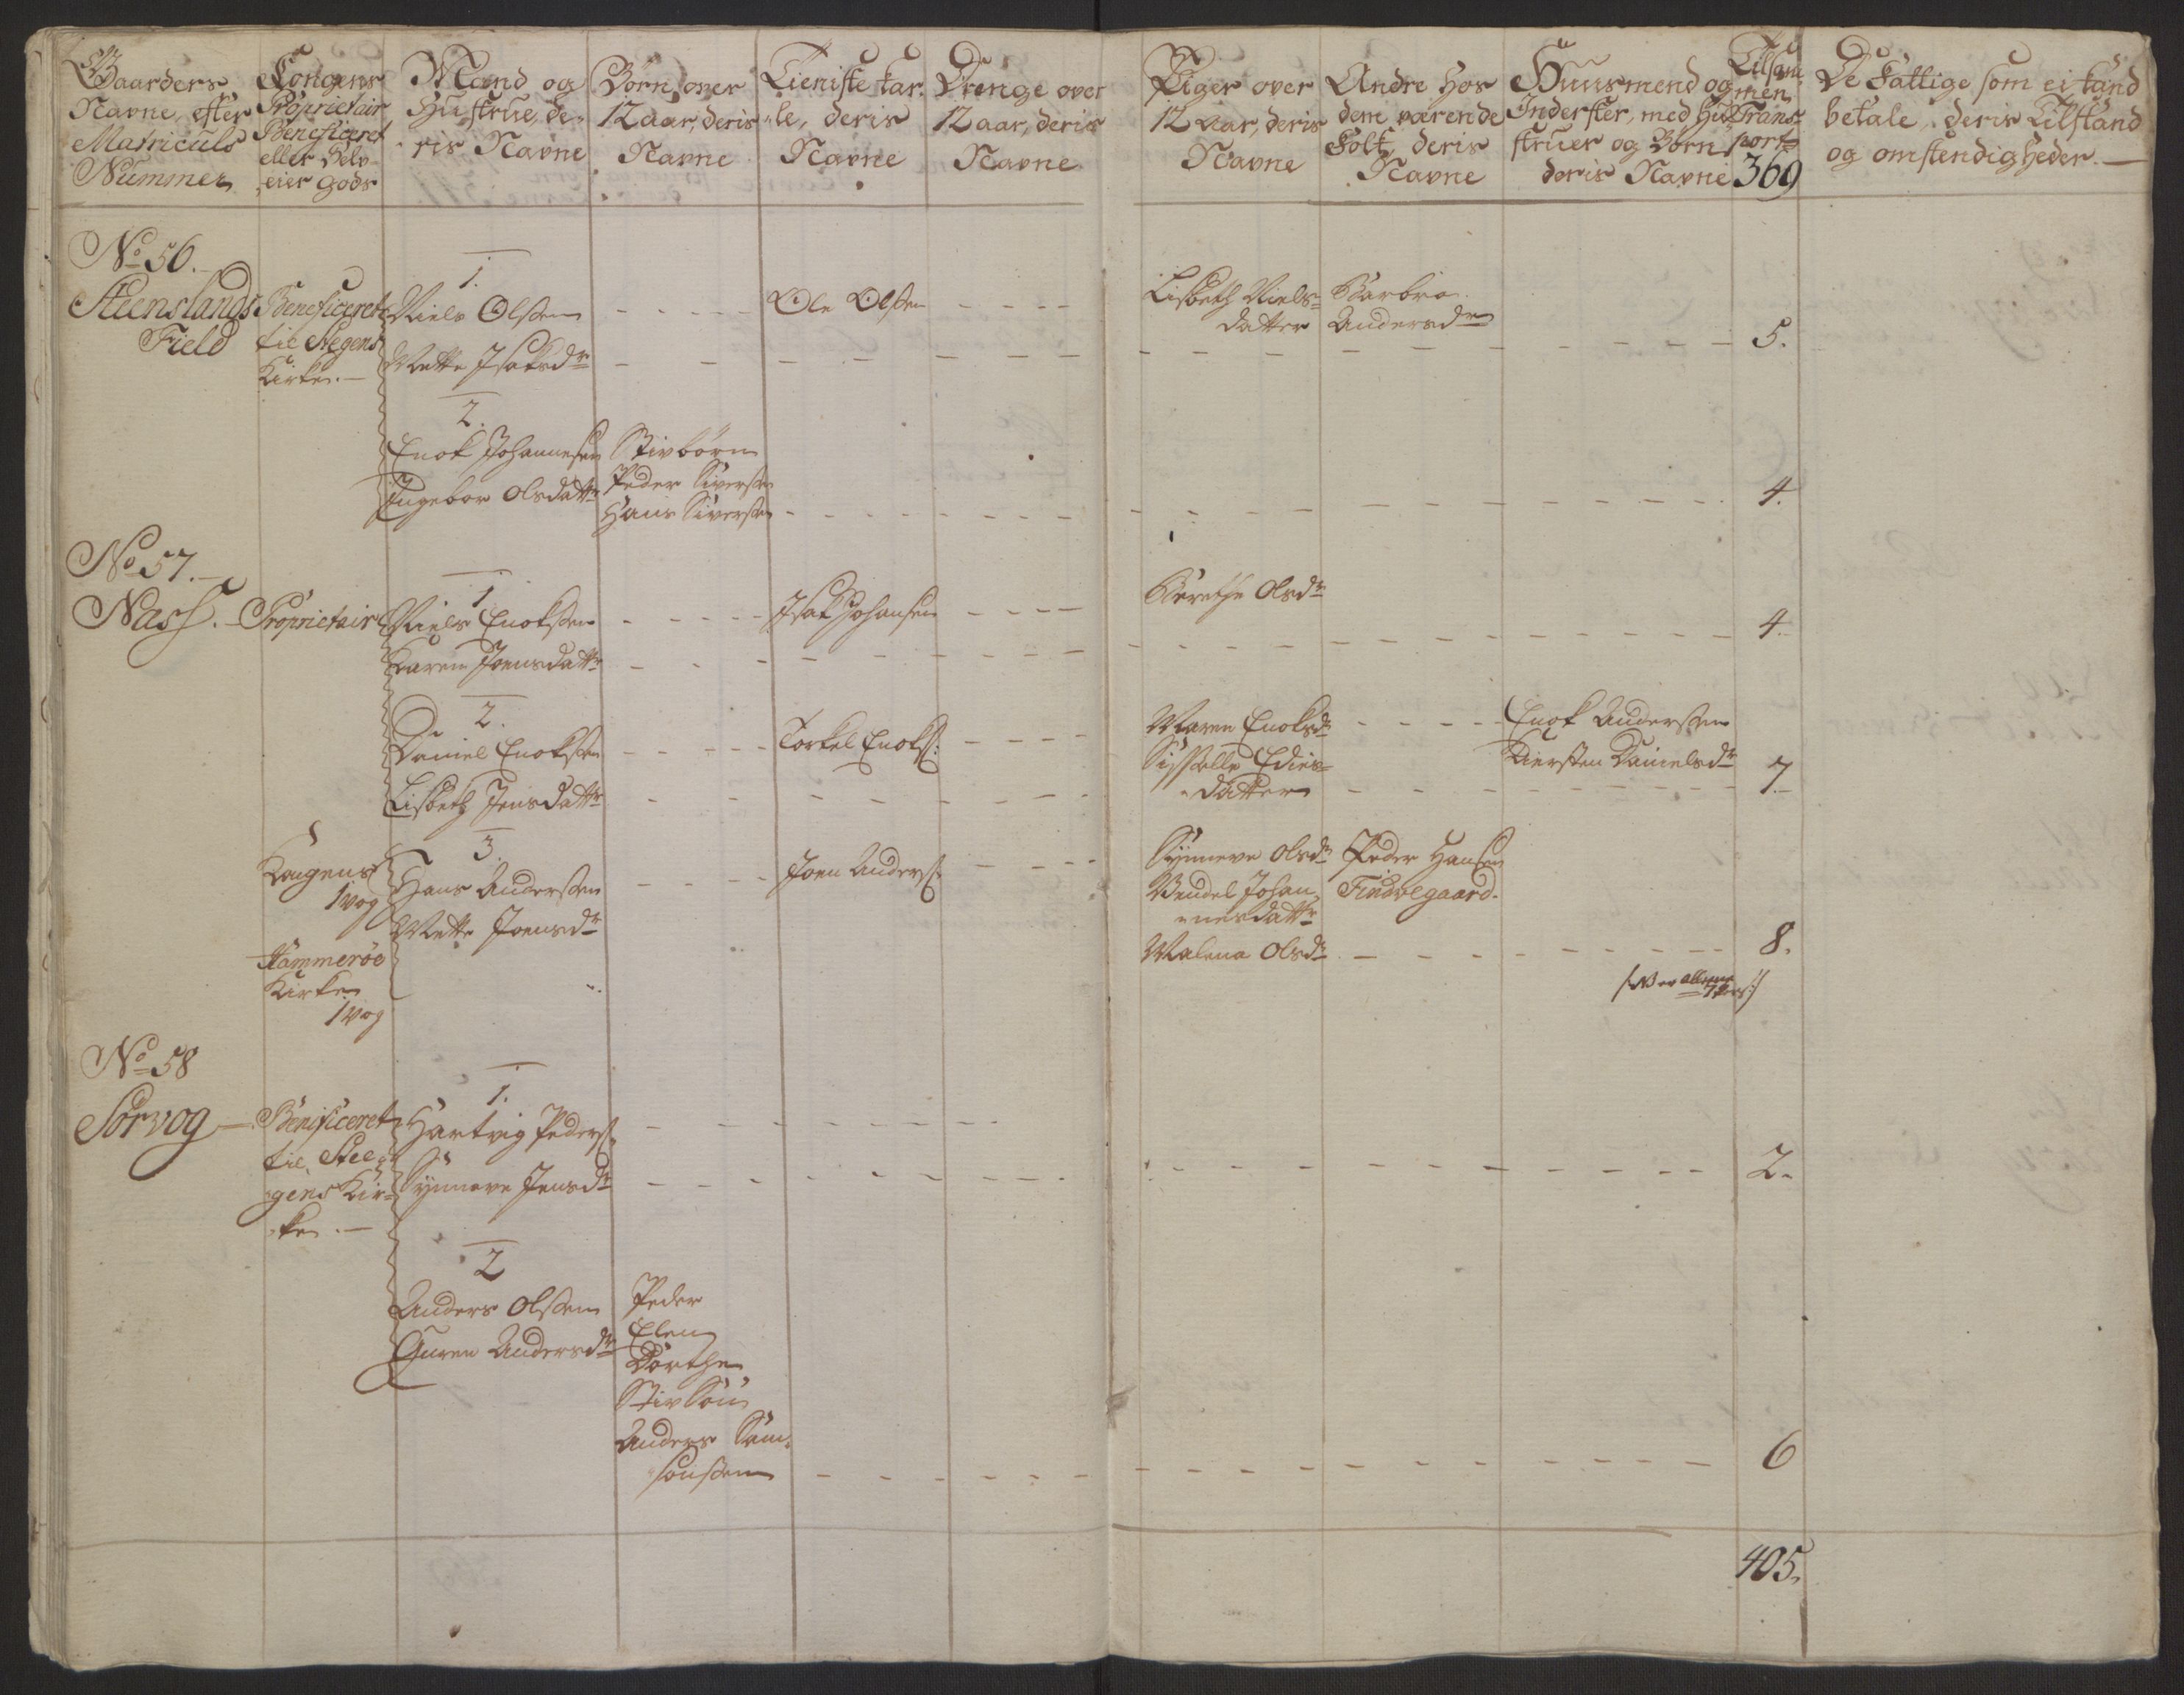 Gaarders
Navne, efter
Matriculs
Nummer
Kongens
Proprietair
Beneficeret
eller Selv-
eier Gods
Mand og
Hustrue, de-
ris Navne
Børn over
12 aar, deris
Navne
Tieniste kar-
le, deris
Navne
Drenge over
12 aar, deris
Navne
Piger over
12 aar, deris
Navne
Andre hos
dem værende
Folk, deris
Navne
Huusmend og
Inderster, med Hu-
struer og Børn
deris Navne
Tilsam
men
Trans-
port
369
De Fattige som ei kand
betale, deris Tilstand
og omstendigheder. —
No 56.
Steenslands
Field
Beneficeret
til Stegens
Kirke. —
1.
Niels Olssen
Mette Isaksdr
Ole Olssen
Lisbeth Niels-
datter
Barbro
Andersdr
5.
2.
Enok Johannesen
Ingebor Olsdattr
Stivbörn
Peder Siverssen
Hans Siverssen
4.
No 57. —
Næss. —
Proprietair
1.
Niels Enokssen
Karen Joensdattr
Isak Johansen
Berethe Olsdr
4.
2.
Daniel Enokssen
Lisbeth Jensdattr
Torkel Enoks:
Maren Enoksdr
Sisselle Edies-
datter
Enok Anderssen
Kiersten Danielsdr
7.
Kongens
1 vog
Hammerøe
Kirke
1 vog
3.
Hans Anderssen
Mette Joensdr
Joen Anders:
Synneve Olsdr
Vendel Johan
nesdattr
Malena Olsdr
Peder Hansen
Findvegaard.
8.
No 58
Sørvog —
Beneficeret
til Stee-
gens Kir-
ke. —
1.
Hartvig Peders:
Synneve Jensdr
2.
2
Anders Olssen
Guren Andersdr
Peder
Elen
Dorthe
Stivsøn
Anders Sam-
sonssen
6
405.